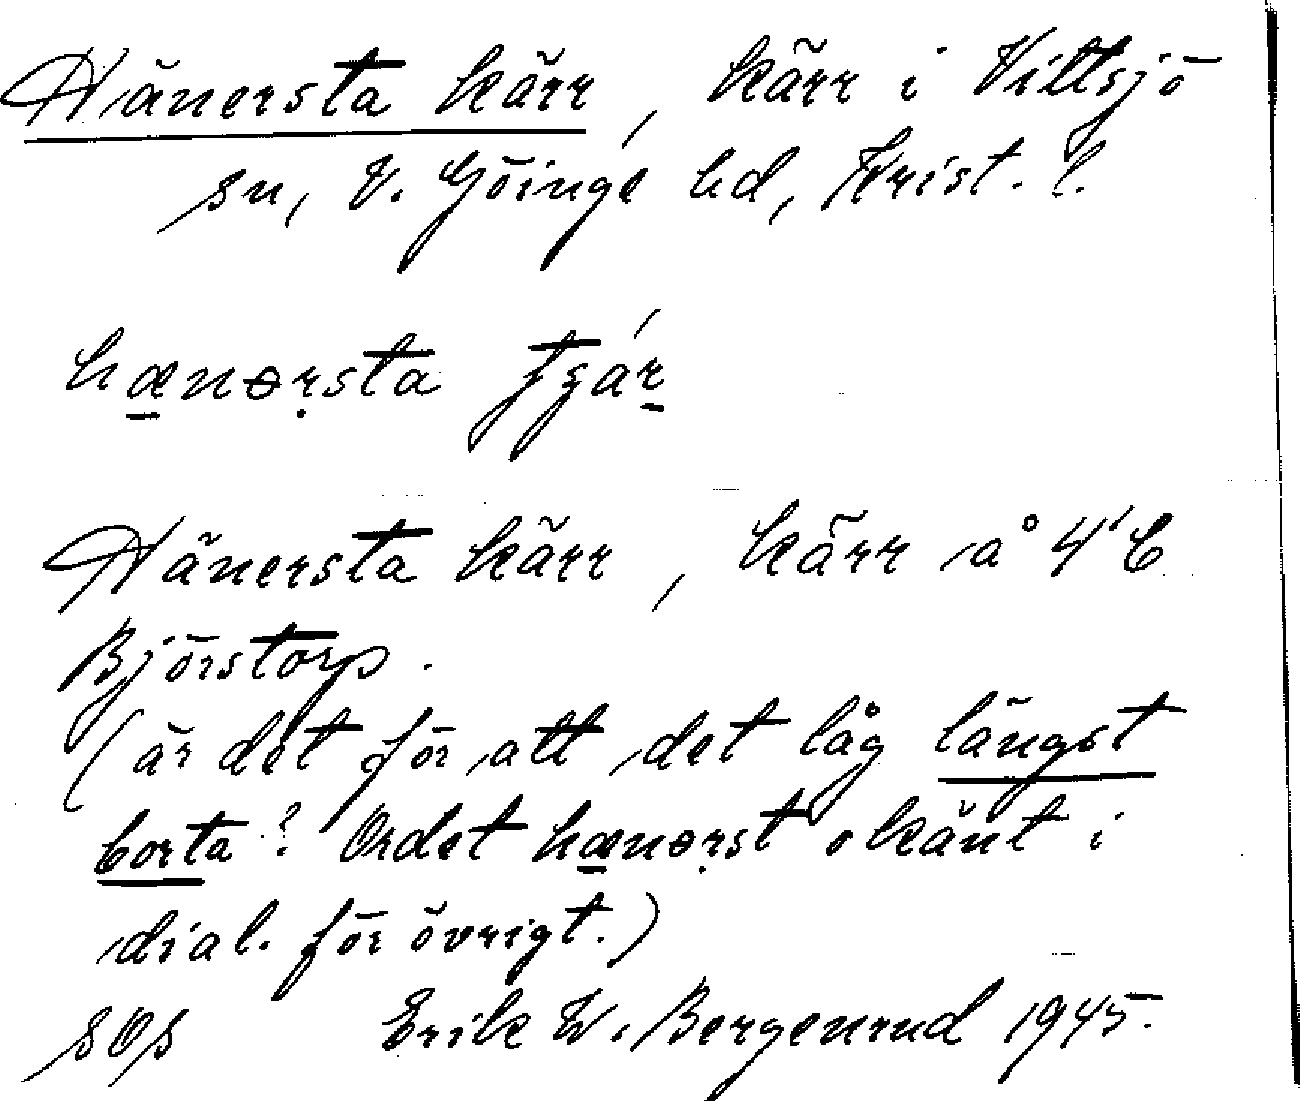 Hänersta kärr, kärr i Vittsjö
sn, V. Göinge hd, Krist. l.
hænərsta tʒár
Hänersta kärr, kärr å 4'C
Björstorp.
(är det för att det låg längst
borta? Ordet hænərst okänt i
dial. för övrigt.)
SOS Erik W. Bergenrud 1945.